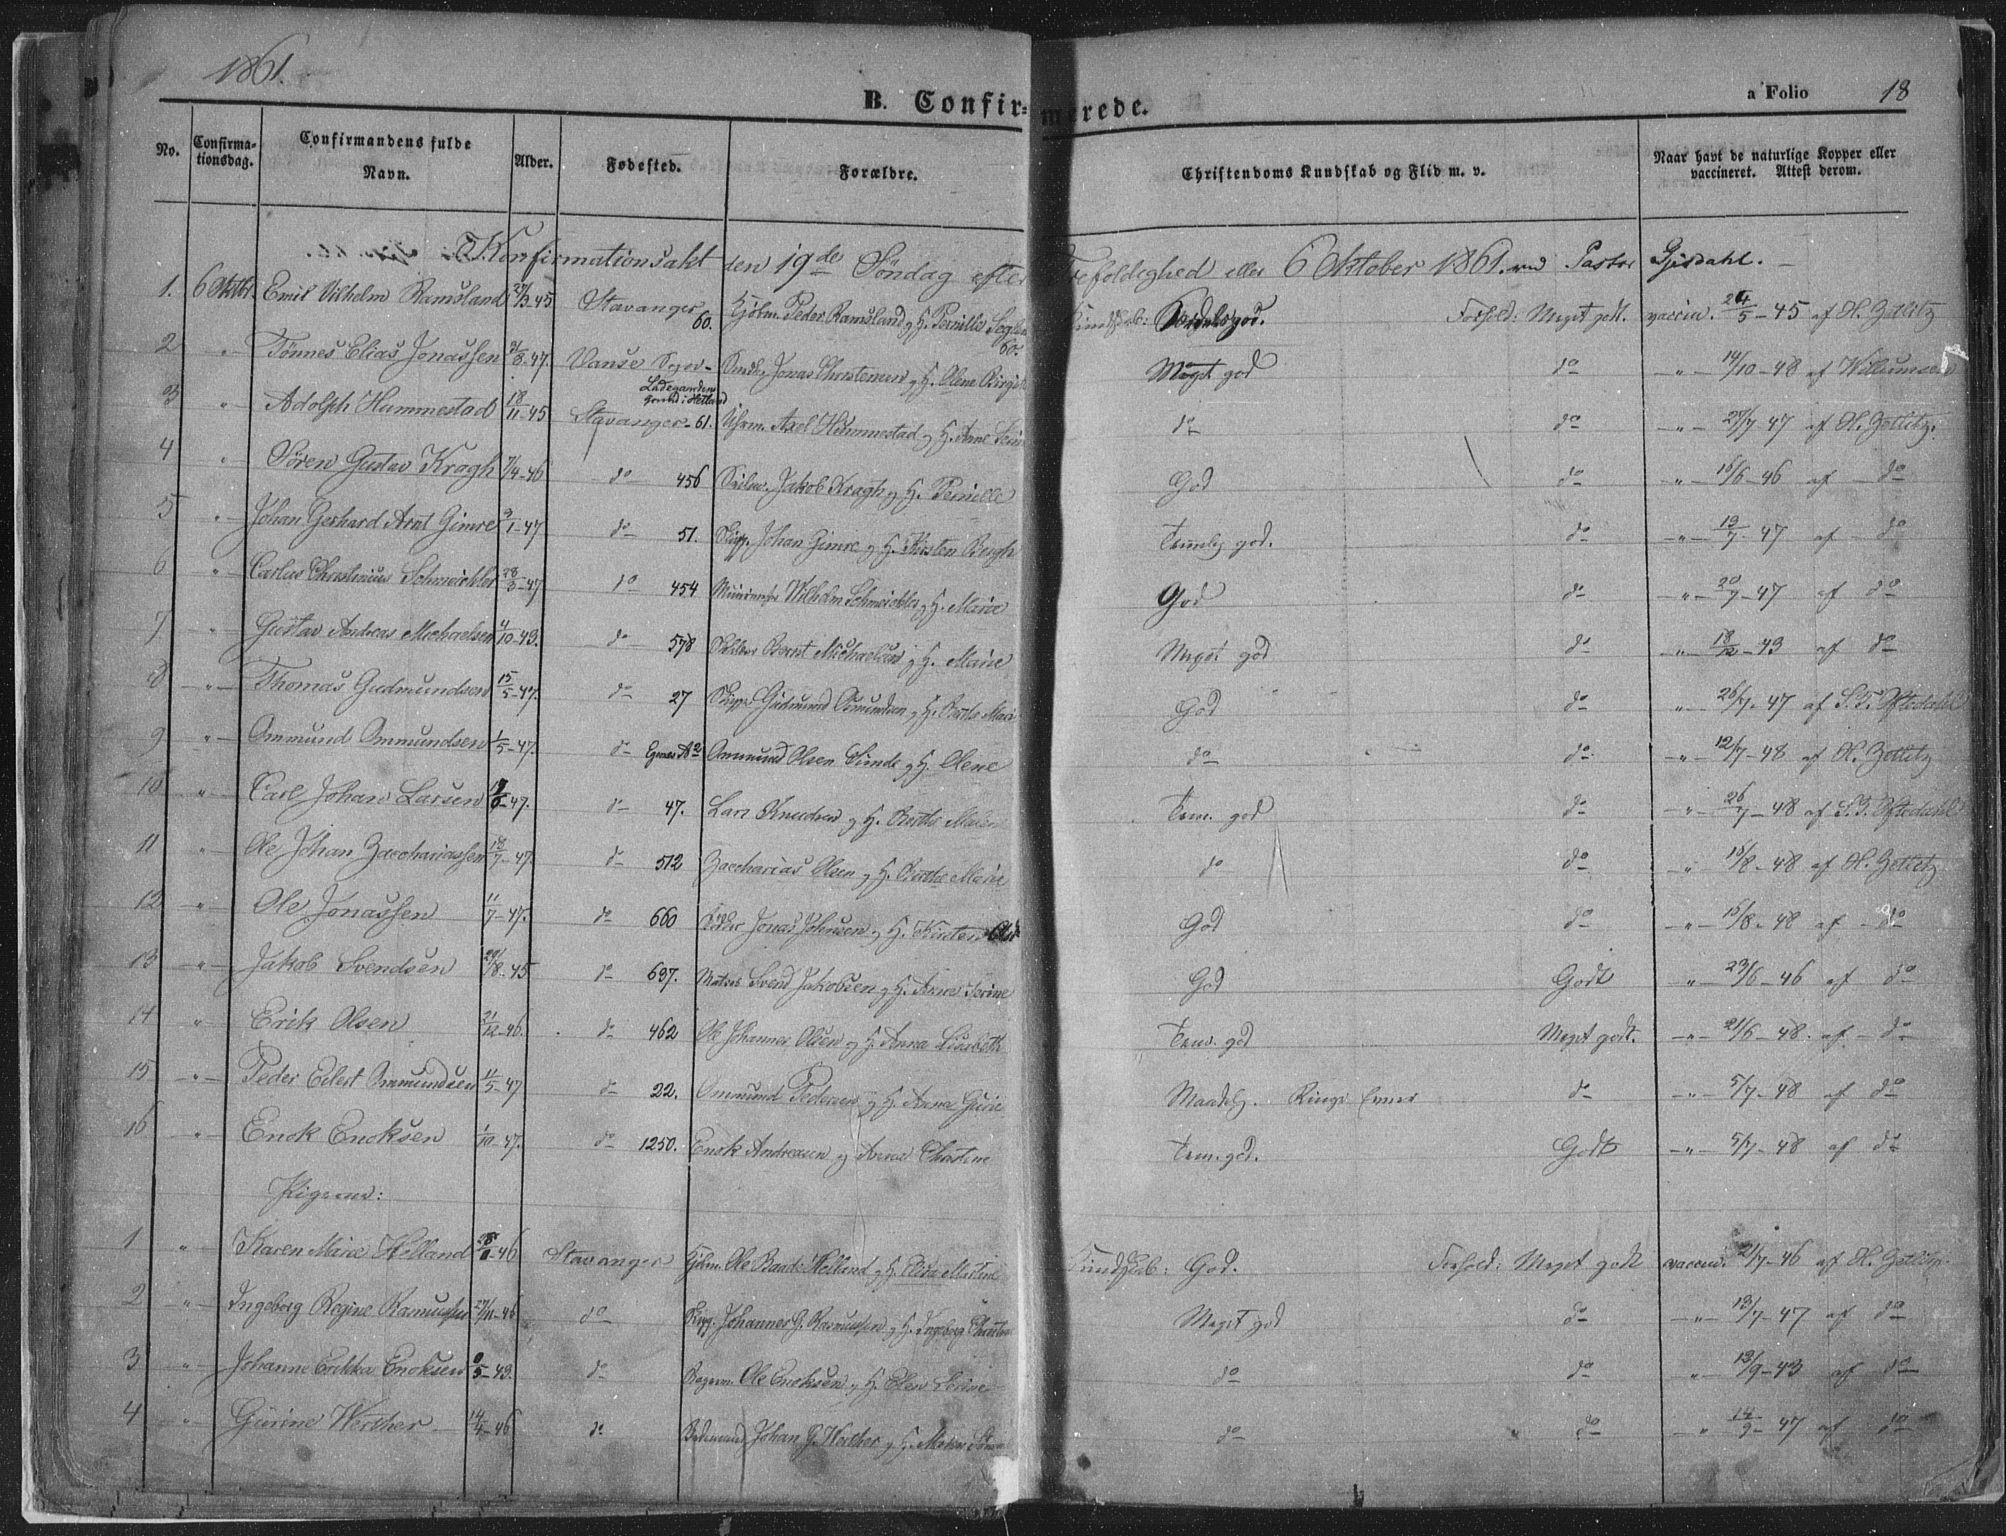 1861.
B. Confirmerede.
a Folio 18
No. Confirmationsdag. Confirmandens fulde Navn. Alder. Fødested. Forældre. Christendoms Kundskab og Flid m. v. Naar havt de naturlige Kopper eller vaccineret. Attest derom.
Konfirmationsakt den 19de Søndag efter Trefoldighed eller 6 Oktober 1861. ved Pastor Gjesdahl.
1. 6 Oktbr. Emil Vilhelm Ramsland 27/3-45 Stavanger 60. Kjøbm. Peder Ramsland og H. Pernille Kundskab: Forhold: Meget godt. vaccin. 24/5-45 af H. Zetlitz
60.
2 -"- Tønnes Elias Jonassen 31/8-47. Vanse Sogn Jonas Christensen og H. Olene Birgit Meget god do 14/10-48 af Willumsen
Ladegaarden Grund i Hetland
3 -"- Adolph Hammestad 18/11-45 Stavanger-61. Axel Hammestad og H. Anne do do -"- 29/7-47 af H. Zetlitz.
4 " Søren Gustav Kragh 7/4-46 do 456 Jakob Kragh og H. Pernille God do -"- 16/6-46 af do
5 -"- Johan Gerhard Arnt Gimre 3/1-47 do 51. Skipp. Johan Gimre og H. Kirsten Bergh Temlig god. do -"- 19/7-47 af do
6 -"- Carlus Christinius Schmeichler 28/3-47 do 454 Vilhelm Schmeichler og H. Marie God do -"- 20/7-47 af do
7 -"- Gustav Andreas Michaelsen 4/10-43. do 578 Bernt Michaelsen og H. Marie Meget god do -"- 18/12-43 af do
8 -"- Thomas Gudmundsen 15/5-47. do 27 Skipp. Gudmund Osmundsen og H. Berthe Marie God do -"- 26/7-47 af S. T. Oftedahl
9 -"- Ommund Ommundsen 1/5-47. do Ommund Olsen Sunde og H. Olene do do -"- 12/7-48 af H. Zetlitz
10 " Carl Johan Larsen -47. do 47. Lars Knudsen og H. Berthe Malene Tem. god do -"- 26/7-48 af S. T. Oftedahl
11 " Ole Johan Zacchariassen 18/7-47. do 512 Zaccharias Olsen og H. Berthe Marie do do " 15/8-48 af H. Zetlitz
12 " Ole Jonassen 11/7-47. do 660 Jonas Johnsen og H. Kirsten God do " 15/8-48 af do
13 -"- Jakob Svendsen 29/8-45 do 637. Matros Svend Jakobsen og H. Anne Serine God Godt " 23/6-46 af do
14 " Erik Olsen 21/12-46. do 462 Ole Johannes Olsen og H. Anna Lisabeth Tem. god Meget godt. -"- 21/6-48. af do
15 -"- Peder Eilert Ommundsen 11/5-47 do 22. Ommund Pedersen og H. Anne Gurie Maadelig. Ringe Evner do -"- 5/7-48 af do
16 -"- Enok Enoksen 1/10-47. do 1250. Enok Andreasen og Anne Christine Tem. god. Godt -"- 5/7-48 af do
Pigerne:
1 " Karen Marie Helland -46 Stavanger Kjøbm. Ole Helland og H. Martine Kundskab: God. Forhold: Meget godt vaccin. 21/7-46 af H. Zetlitz.
2 -"- Ingeborg Regine Rasmussen 27/11-46 do Skipp. Johannes G. Rasmussen og H. Ingeborg Meget god do -"- 13/7-47 af do
3 -"- Johanne Erikka Enoksen 5-43. do Ole Enoksen og H. Elen Serine do do " 13/9-43 af do
4 -"- Gurine Werther 14/4-46 do Johan G. Werther og H. Maren do do -"- 14/9-47 af do